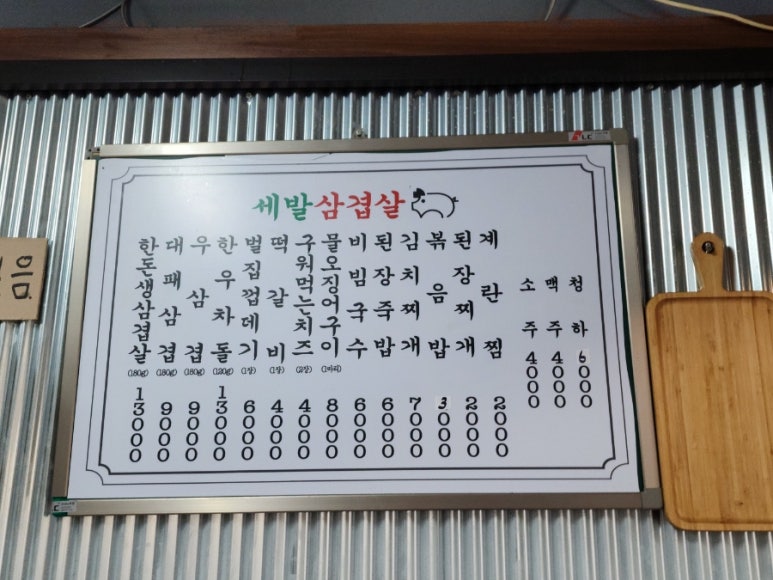 세발삼겹살
한돈생삼겹살 (180g) 13000
대패삼겹 (180g) 9000
우삼겹 (180g) 9000
한우차돌 (120g) 13000
벌집껍데기 (1장) 6000
떡갈비 (1장) 4000
구워먹는치즈 (2장) 4000
물오징어구이 (1마리) 8000
비빔국수 6000
된장죽밥 6000
김치찌개 7000
볶음밥 3000
된장찌개 2000
계란찜 2000
소주 4000
맥주 4000
청하 6000